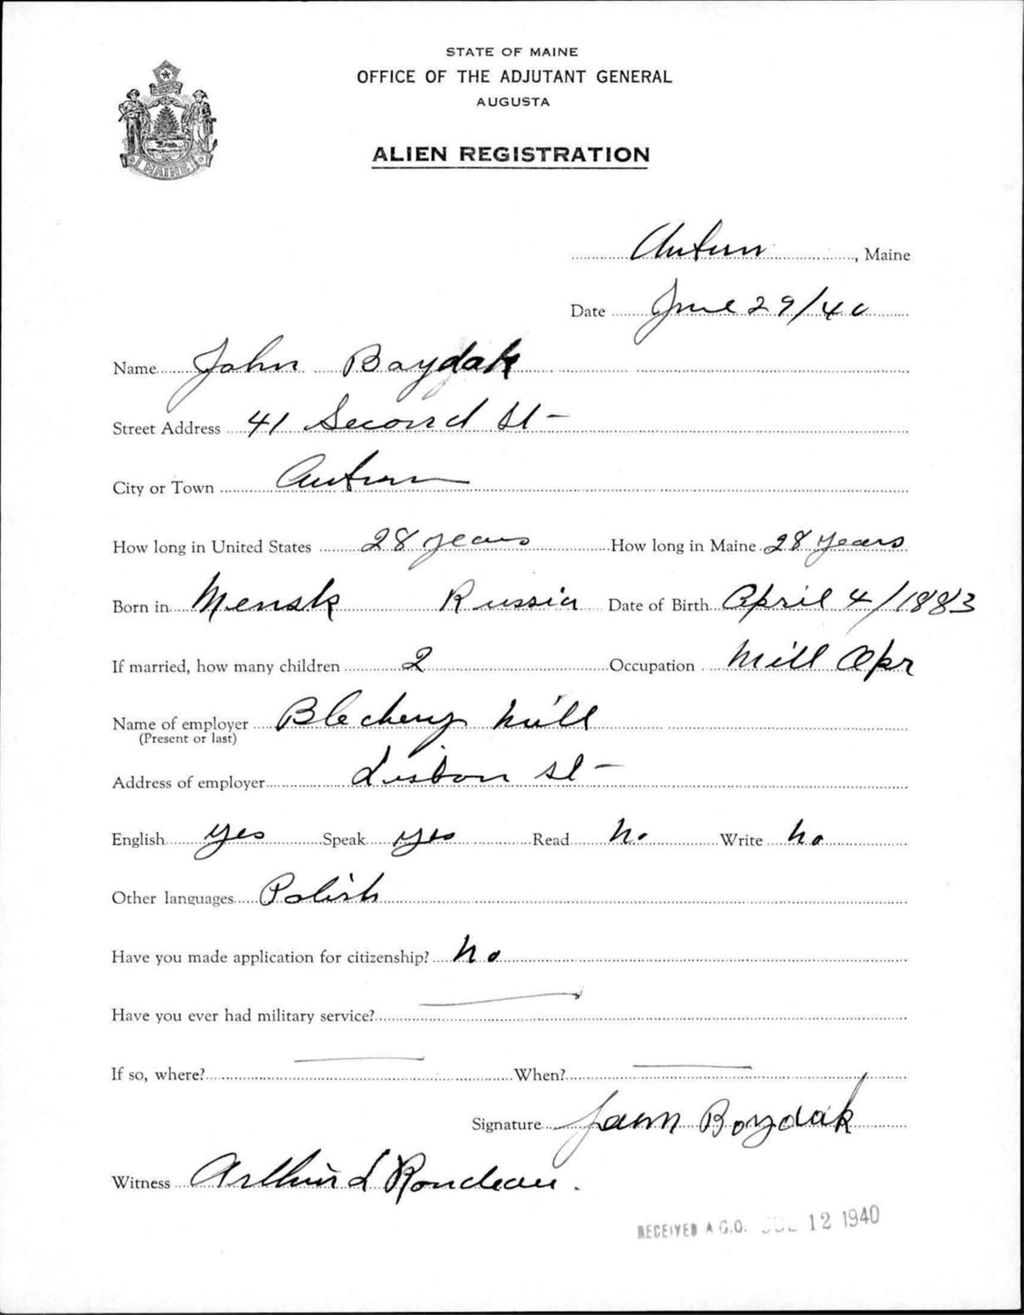 STATE OF MAINE
OFFICE OF THE ADJUTANT GENERAL
AUGUSTA
ALIEN REGISTRATION
MAINE
Auburn, Maine
Date June 29/40
Name John Baydak
Street Address 41 Second St-
City or Town Auburn
How long in United States 28 years How long in Maine 28 years
Born in Mensk Russia Date of Birth April 4/1883
If married, how many children 2 Occupation Mill Opr
Name of employer Blechery Mill
(Present or last)
Address of employer Lisbon St-
English yes Speak yes Read No Write No
Other languages Polish
Have you made application for citizenship? No
Have you ever had military service? —
If so, where? — When? —
Signature Boydak
Witness Arthur L Rondeau.
RECEIVED A.G.O. JUL 12 1940